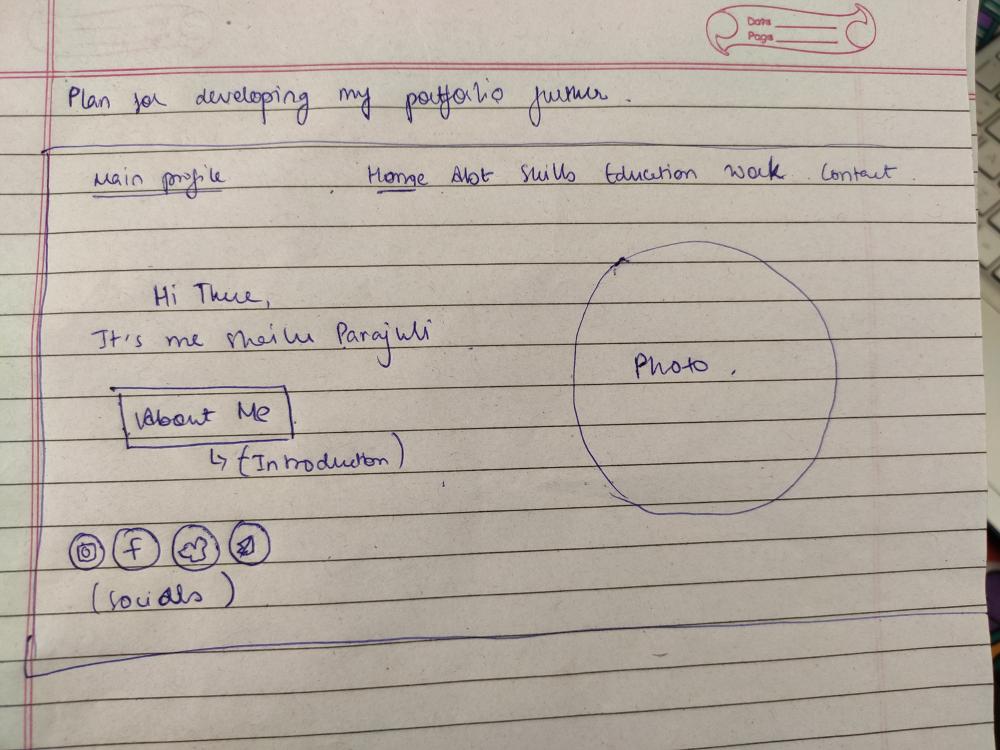 Date
Page
Plan for developing my portfolio further.
Main profile
Home Abt Skills Education Work Contact
Hi There,
It's me Parajuli
Photo.
About Me
↳ (Introduction)
f
(socials)